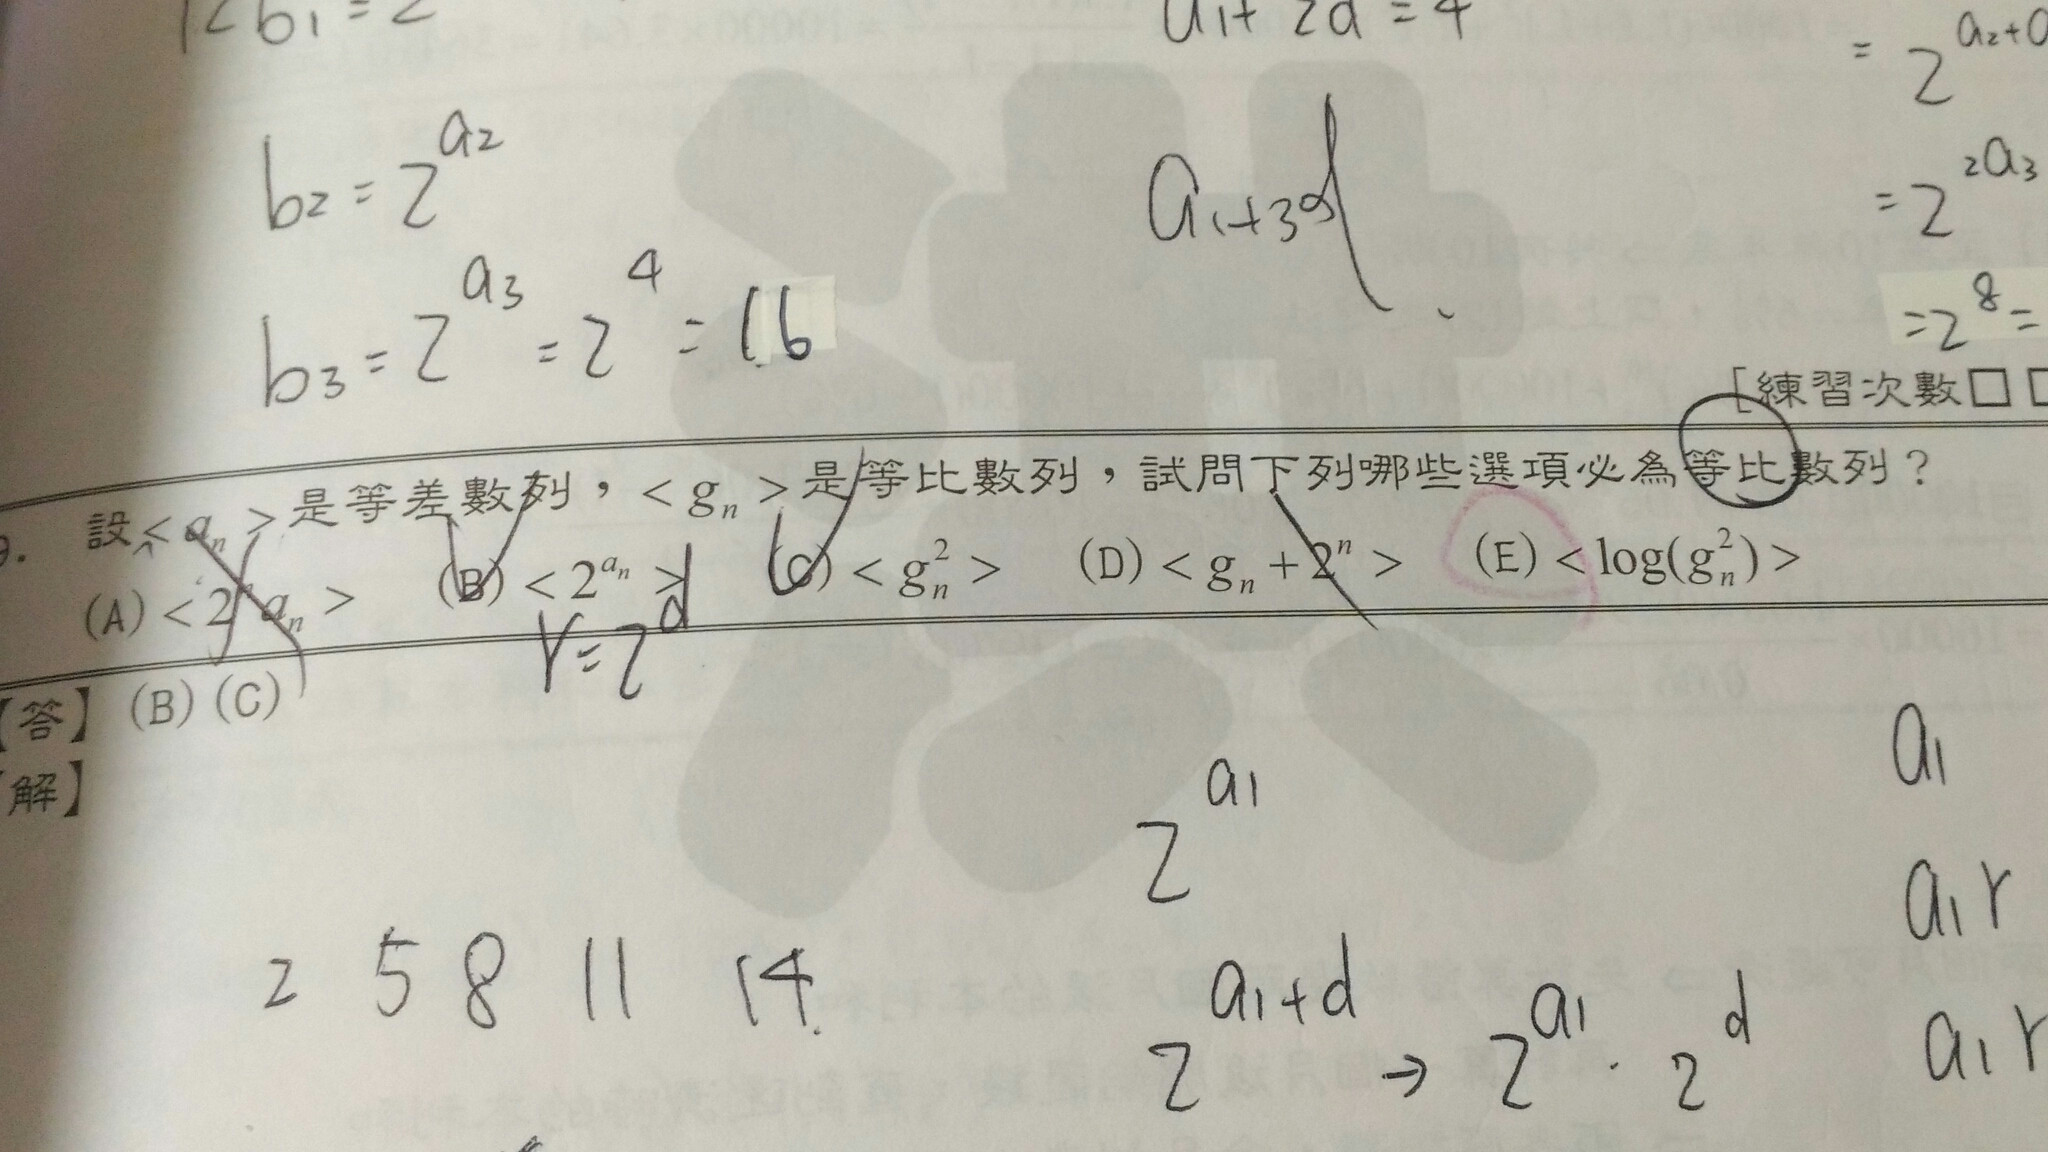 a₁+2d=4
=2^{a₂+
b₂=2^{a₂}
a₁+3d
=2^{2a₃}
b₃=2^{a₃}=2^4=16
=2^8=
[練習次數□□
9. 設<a_n>是等差數列，<g_n>是等比數列，試問下列哪些選項必為等比數列？
(A)<2^n a_n> (B)<2^{a_n}> (C)<g_n^2> (D)<g_n+2^n> (E)<log(g_n^2)>
r=2^d
【答】(B)(C)
【解】
2^{a₁}
a₁
a₁r
2 5 8 11 14
2^{a₁+d}→2^{a₁}·2^d
a₁r